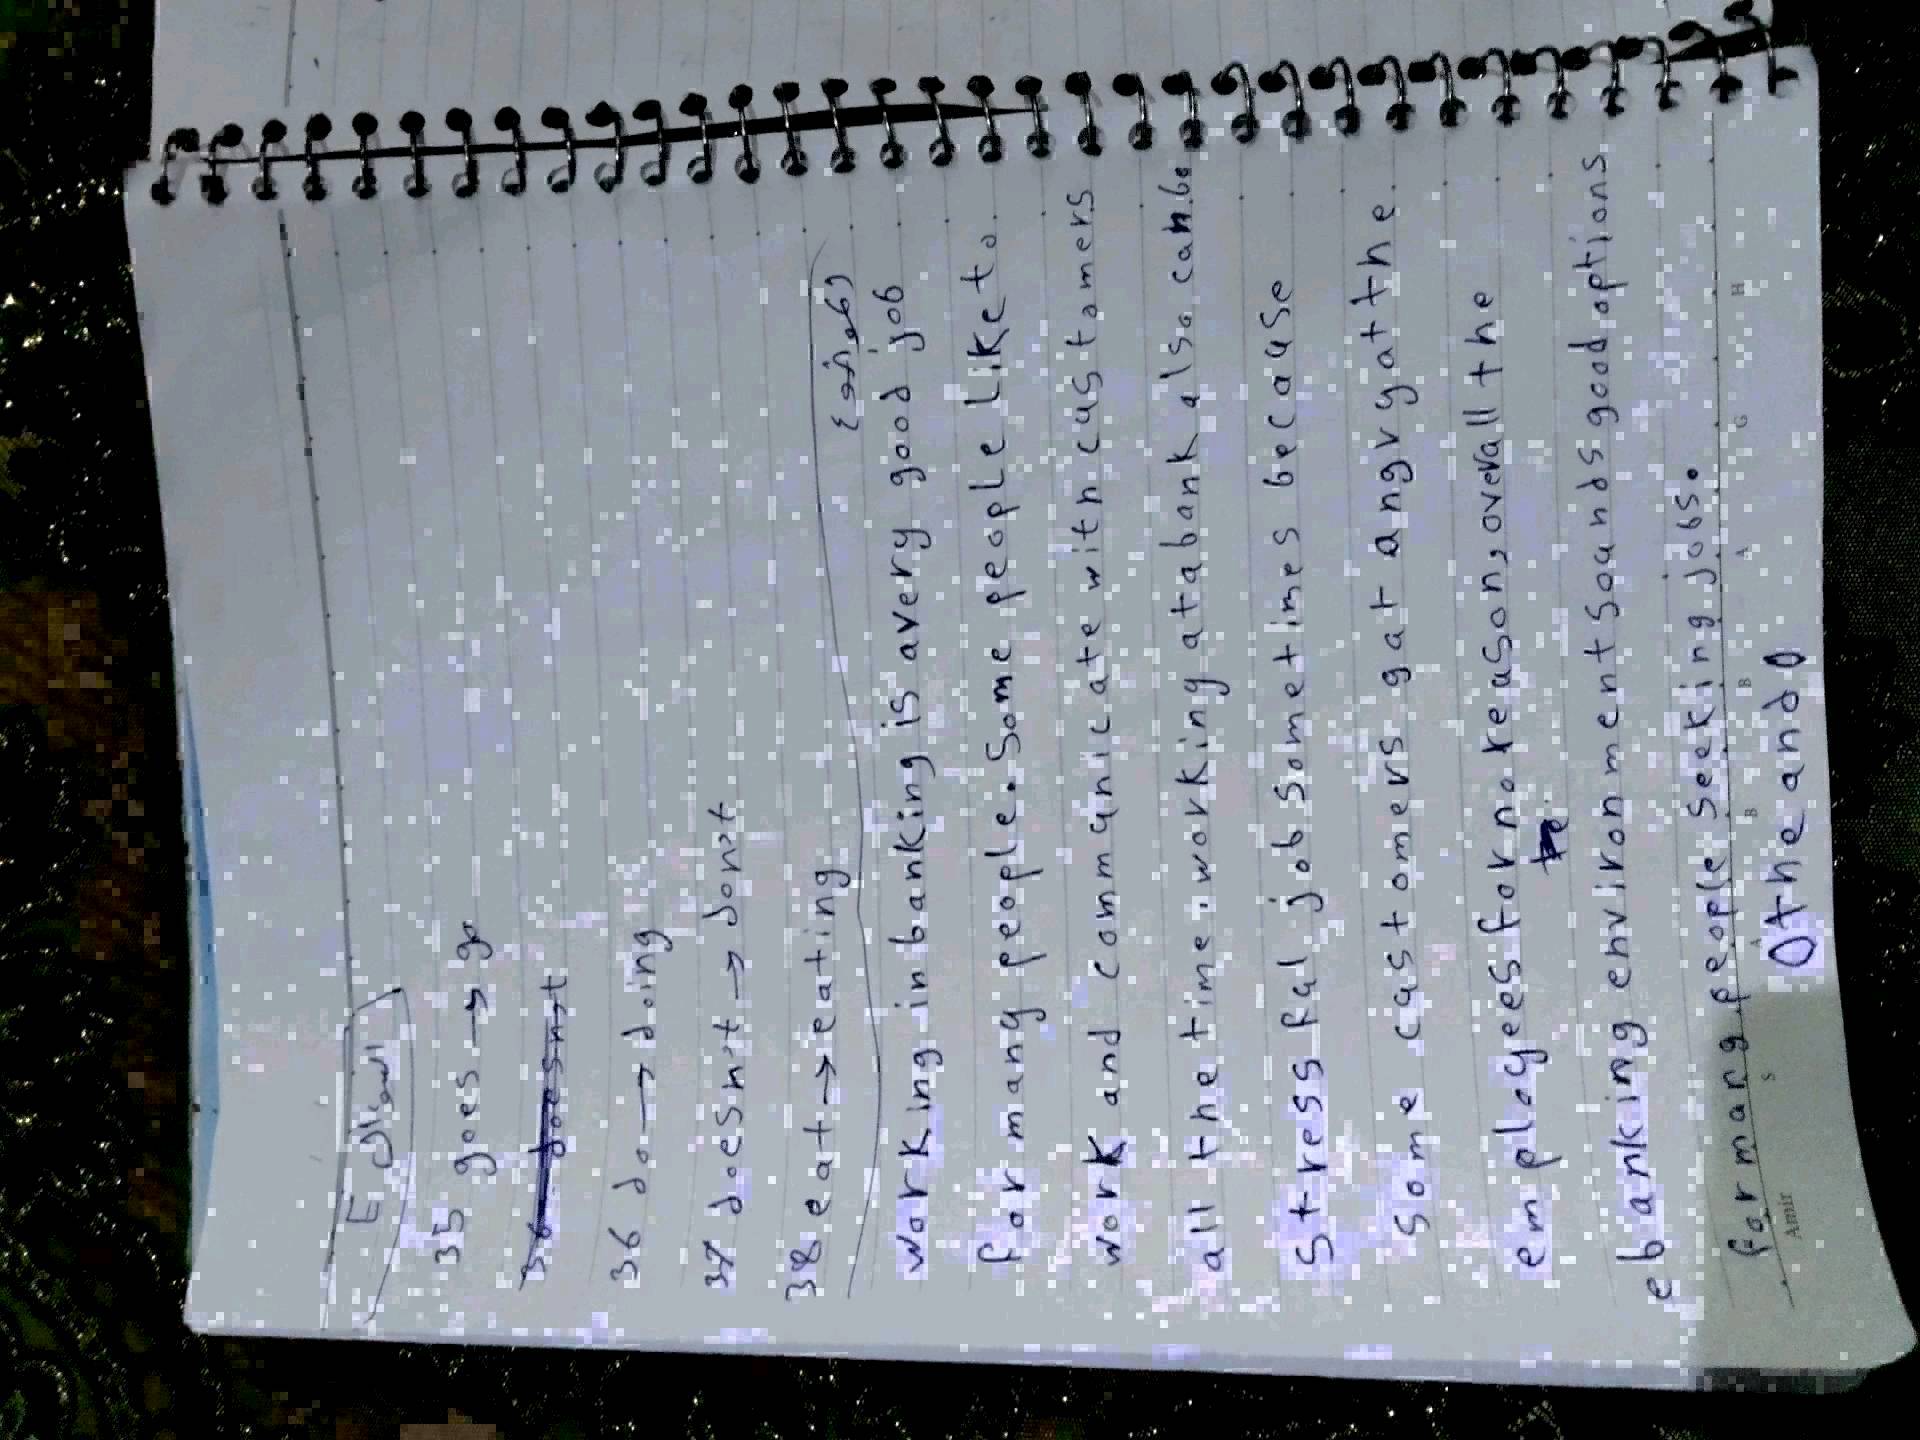 35 goes → go
36 do → doing
37 doesnot → donot
38 eat → eating
working in banking is a very good job
for many people. Some people like to
work and communicate with customers
all the time. working at a bank also can be
Stressful job sometimes because
Some customers gat angry at the
employees for no reason, overall the
banking environment Sounds good options
for many people Seeking jobs.
the and